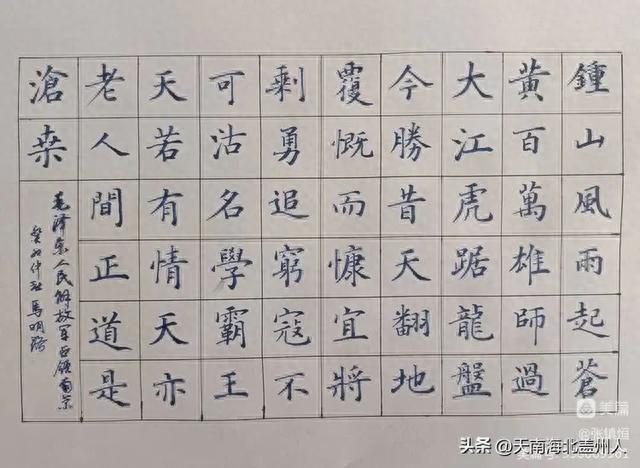 鍾山風雨起蒼
黃百萬雄師過
大江虎踞龍盤
今勝昔天翻地
覆慨而慷宜將
剩勇追窮寇不
可沽名學霸王
天若有情天亦
老人間正道是
滄桒
毛泽东人民解放军占领南京
癸卯仲秋馬明
美篇
@张镇恒
头条 @天南海北盖州人